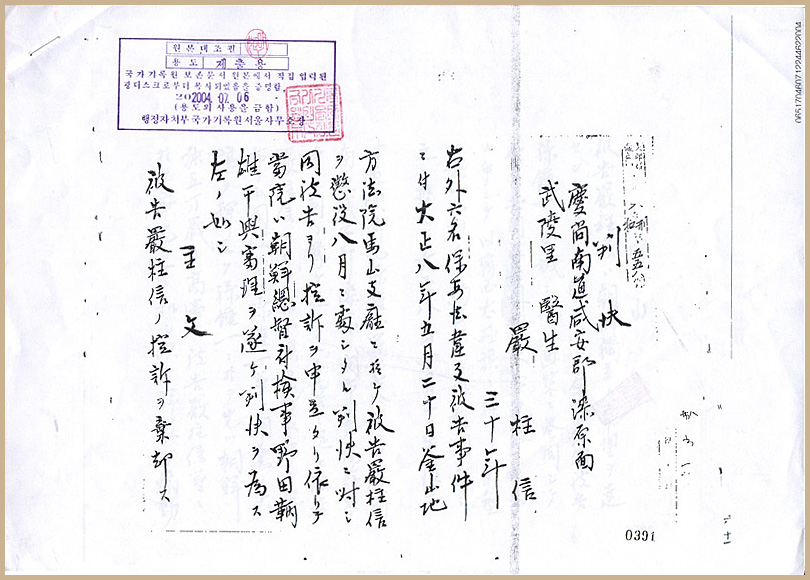 원본대조필
용도 제출용
국가기록원 보존문서 원본에서 직접 입력된
광디스크로부터 복사되었음을 증명함.
2004.07.06
(용도외사용을 금함)
행정자치부국가기록원서울사무소장
判決
慶尙南道咸安郡漆原面
武陵里 醫生
嚴柱信
三十年
右外六名保安法違反被告事件
ニ付大正八年五月二十日釜山地
方法院馬山支廳ニ於ケ被告嚴柱信
ヲ懲役八月ニ處シタル判決ニ対シ
同被告ヨリ控訴ヲ申立タリ依テ
當院ハ朝鮮總督府檢事野田鞆
雄干與審理ヲ遂ケ判決ヲ為ス
左ノ如シ
主文
被告嚴柱信ノ控訴ヲ棄却ス
0391